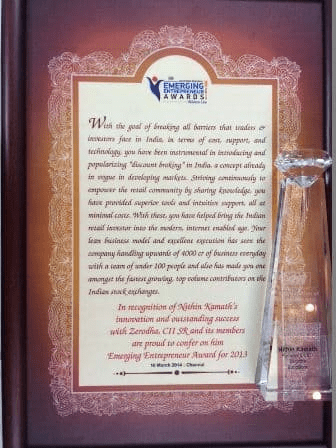 EMERGING
ENTREPRENEUR
AWARDS
With the goal of breaking all barriers that traders &
investors face in India, in terms of cost, support, and
technology, you have been instrumental in introducing and
popularizing "discount broking" in India, a concept already
in vogue in developing markets. Striving continuously to
empower the retail community by sharing knowledge, you
have provided superior tools and intuitive support, all at
minimal costs. With these, you have helped bring the Indian
retail investor into the modern, internet enabled age. Your
lean business model and excellent execution has seen the
company handling upwards of 4000 cr of business everyday
with a team of under 100 people and also has made you one
amongst the fastest growing, top volume contributors on the
Indian stock exchanges.
In recognition of Nithin Kamath's
innovation and outstanding success
with Zerodha, CII SR and its members
are proud to confer on him
Emerging Entrepreneur Award for 2013
16 March 2014 : Chennai
Nithin Kamath